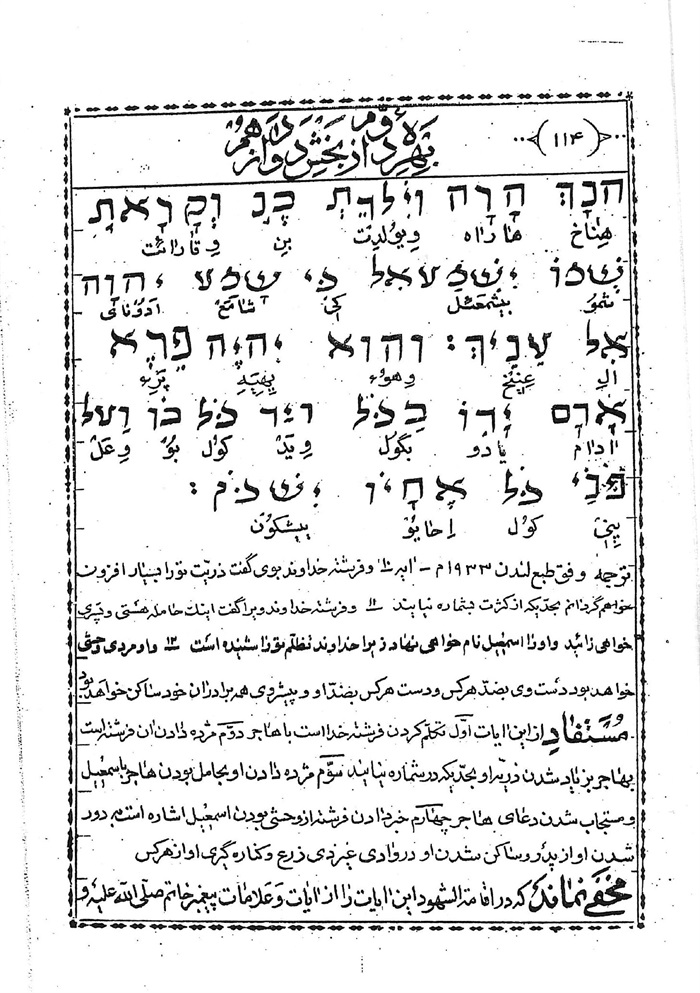 ﴿۱۱۴﴾
بهرهٔ دوّم از بخش دوازدهم
הִנָּךְ הָרָה וְיֹלַדְתְּ בֵּן וְקָרָאת
هِنّاخ هاراه ویولدت بن وقارائت
שְׁמוֹ יִשְׁמָעֵאל כִּי שָׁמַע יְהוָה
شمو ییشمعئل کی شامَع ادونای
אֶל עָנְיֵךְ: וְהוּא יִהְיֶה פֶּרֶא
ال وهوء ییهیه
אָדָם יָדוֹ בַכֹּל וְיַד כֹּל בּוֹ וְעַל
اادام یادو بکول وید کول بو وعل
פְּנֵי כָל אֶחָיו יִשְׁכֹּן:
پنی کول احایو ییشکون
ترجمه وفق طبع لندن ۱۹۳۳م - ایه ۱۰ وفرشتهٔ خداوند بوی گفت ذریت تورا بسیار افزون
خواهم گردانم بحدیکه از کثرت بشماره نیایند ۱۱ وفرشتهٔ خداوند ویرا گفت اینك حامله هستی وپسری
خواهی زائید واورا اسمعیل نام خواهی نهاد زیرا خداوند تظلم تورا شنیده است ۱۲ واو مردی وحشی
خواهد بود دست وی بضد هرکس ودست هرکس بضد او وپیشروی همه برادران خود ساکن خواهد بود
مستفاد از این ایات اول تکلم کردن فرشته خدا است با هاجر دوّم مژده دادن ان فرشته است
بهاجر بزیاد شدن ذریه او بحدیکه در شماره نیایند سوّم مژده دادن او بحامل بودن هاجر باسمعیل
ومستجاب شدن دعای هاجر چهارم خبر دادن فرشته از وحشی بودن اسمعیل اشاره است به دور
شدن او از پدر وساکن شدن او در وادی غیر ذی زرع وکناره گیری او از هرکس
مخفی نماند که در اقامة الشهود این ایات را از ایات وعلامات پیغمبر خاتم صلّی الله علیه و